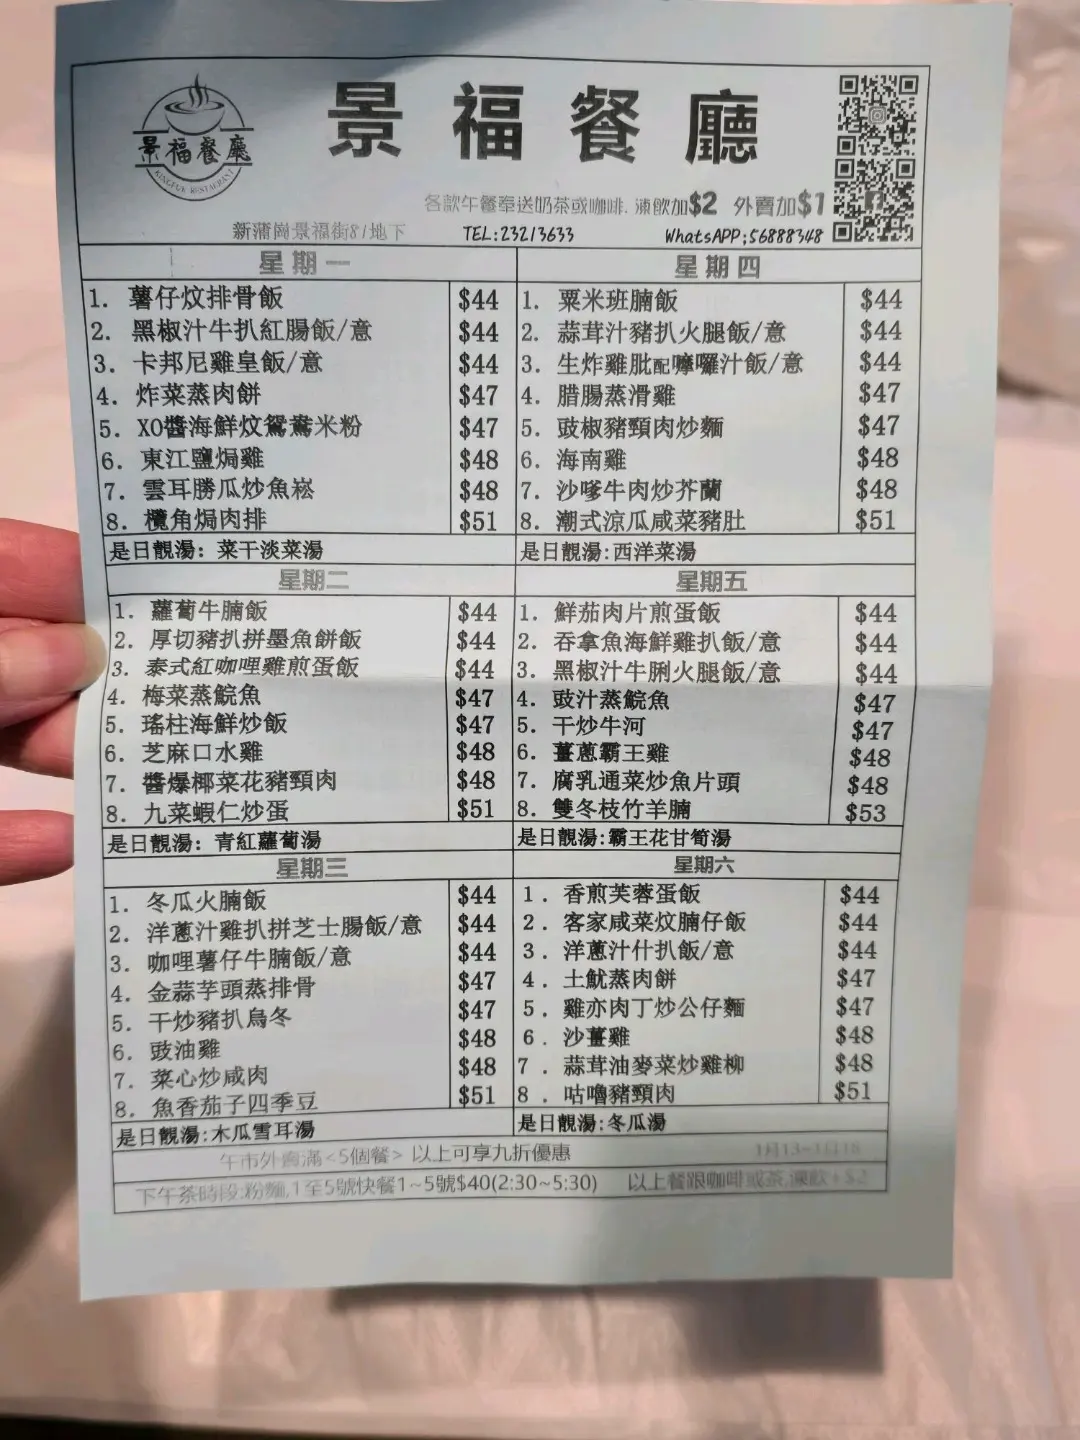 景福餐廳
KINGFUK RESTAURANT
景福餐廳
各款午餐奉送奶茶或咖啡. 凍飲加$2 外賣加$1
新蒲崗景福街81地下 TEL:23213633 WhatsAPP;56888348
星期一
1. 薯仔炆排骨飯 $44
2. 黑椒汁牛扒紅腸飯/意 $44
3. 卡邦尼雞皇飯/意 $44
4. 炸菜蒸肉餅 $47
5. XO醬海鮮炆鴛鴦米粉 $47
6. 東江鹽焗雞 $48
7. 雲耳勝瓜炒魚崧 $48
8. 欖角焗肉排 $51
是日靚湯: 菜干淡菜湯
星期二
1. 蘿蔔牛腩飯 $44
2. 厚切豬扒拼墨魚餅飯 $44
3. 泰式紅咖哩雞煎蛋飯 $44
4. 梅菜蒸鯇魚 $47
5. 瑤柱海鮮炒飯 $47
6. 芝麻口水雞 $48
7. 醬爆椰菜花豬頸肉 $48
8. 九菜蝦仁炒蛋 $51
是日靚湯: 青紅蘿蔔湯
星期三
1. 冬瓜火腩飯 $44
2. 洋蔥汁雞扒拼芝士腸飯/意 $44
3. 咖哩薯仔牛腩飯/意 $44
4. 金蒜芋頭蒸排骨 $47
5. 干炒豬扒烏冬 $47
6. 豉油雞 $48
7. 菜心炒咸肉 $48
8. 魚香茄子四季豆 $51
是日靚湯:木瓜雪耳湯
星期四
1. 粟米班腩飯 $44
2. 蒜茸汁豬扒火腿飯/意 $44
3. 生炸雞肶配嚤囉汁飯/意 $44
4. 腊腸蒸滑雞 $47
5. 豉椒豬頸肉炒麵 $47
6. 海南雞 $48
7. 沙嗲牛肉炒芥蘭 $48
8. 潮式涼瓜咸菜豬肚 $51
是日靚湯:西洋菜湯
星期五
1. 鮮茄肉片煎蛋飯 $44
2. 吞拿魚海鮮雞扒飯/意 $44
3. 黑椒汁牛脷火腿飯/意 $44
4. 豉汁蒸鯇魚 $47
5. 干炒牛河 $47
6. 薑蔥霸王雞 $48
7. 腐乳通菜炒魚片頭 $48
8. 雙冬枝竹羊腩 $53
是日靚湯:霸王花甘筍湯
星期六
1. 香煎芙蓉蛋飯 $44
2. 客家咸菜炆腩仔飯 $44
3. 洋蔥汁什扒飯/意 $44
4. 土魷蒸肉餅 $47
5. 雞亦肉丁炒公仔麵 $47
6. 沙薑雞 $48
7. 蒜茸油麥菜炒雞柳 $48
8. 咕嚕豬頸肉 $51
是日靚湯:冬瓜湯
午市外賣滿<5個餐> 以上可享九折優惠 1月13~1月18
下午茶時段:粉麵,1至5號快餐1~5號$40(2:30~5:30) 以上餐跟咖啡或茶,凍飲+$2